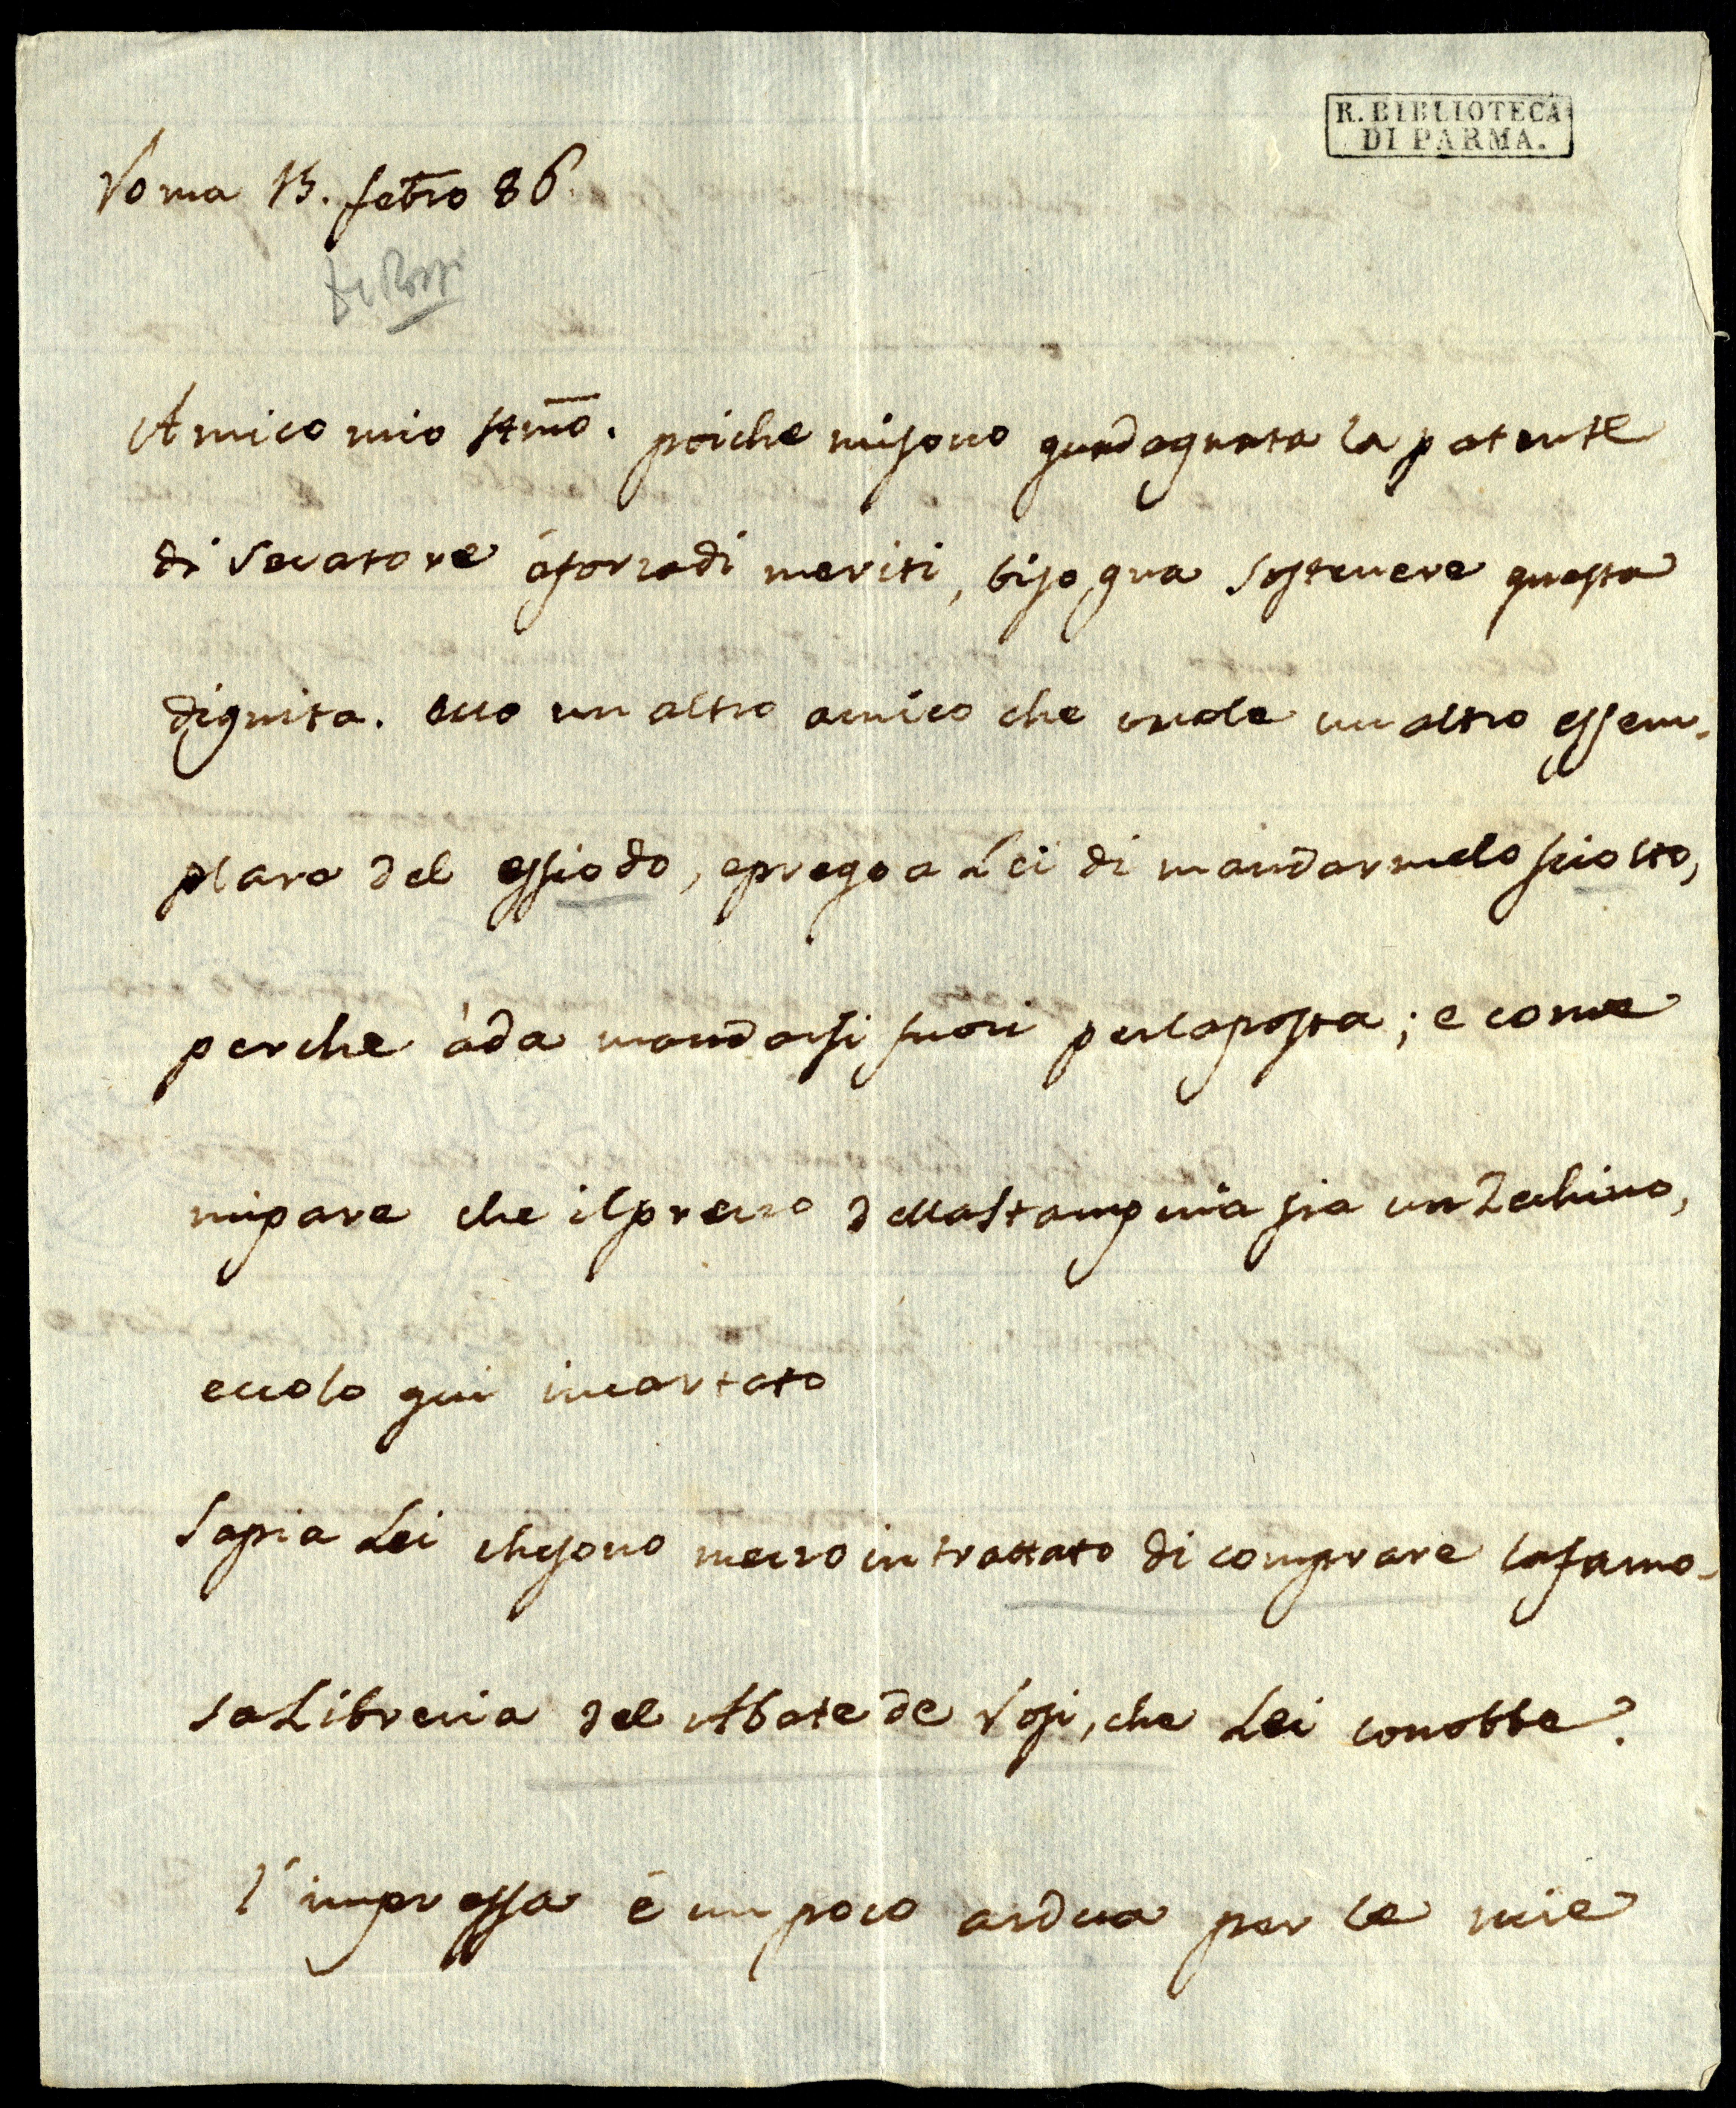 R. BIBLIOTECA
DI PARMA.
Roma 15. febro 86.
De Rossi
Amico mio stmo. poiche misono guadagnata la patente
di secatore áforzadi meriti, bisogna sostenere questa
dignita. ecco un altro amico che vuole un altro essem-
plare del essiodo, eprego a Lei di mandarmelo sciolto,
perche àda mandarsi fuori perlaposta; e come
mipare che ilprezzo dellastamperia sia unZechino,
eccolo qui incartato
Sapia Lei chesono mezzo intrattato di comprare lafamo-
saLibreria del Abate de Rossi, che Lei conobbe?
l'impressa é un poco ardua per le mie